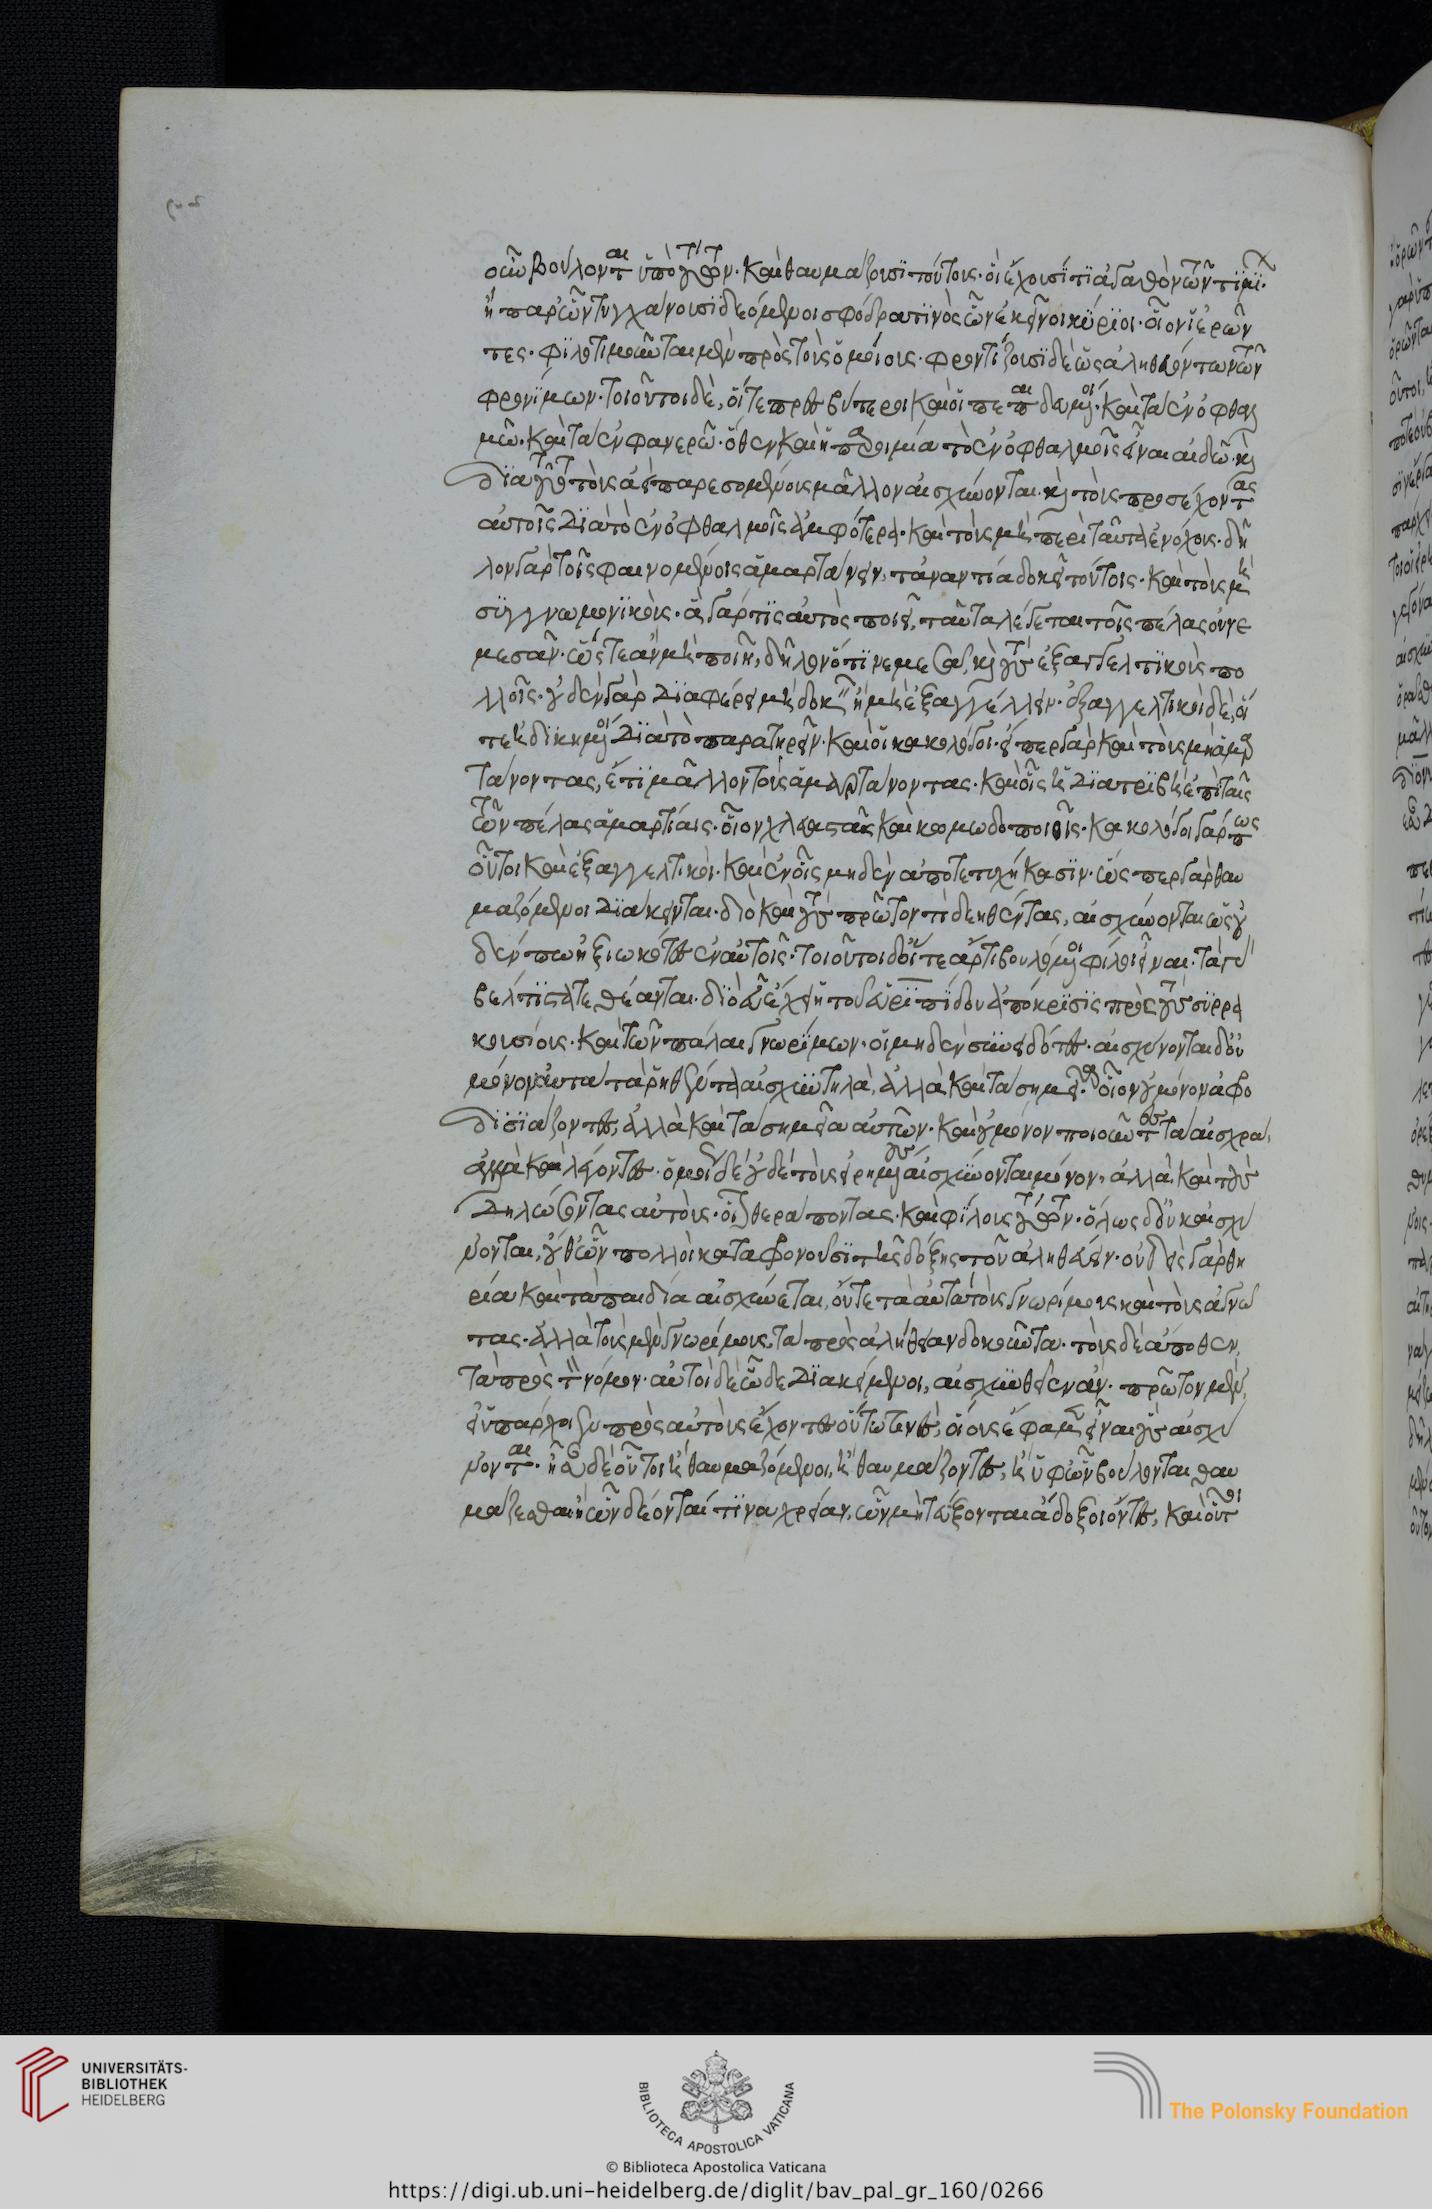 οσιν βούλονται ὑπὸ τούτων· καὶ θαυμάζουσϊ τούτους· οἱ ἔχουσί τϊ ἀγαθὸν τῶν τϊμί·
ἢ παρ' ὧν τυγχάνουσϊ δεόμενοι σφόδρα τϊνὸς ὧν ἐκεῖνοι κύρϊοι· οἷον ἱ ἐρῶν
τες· φϊλοτιμοῦνται μὲν πρὸς τοὺς ὁμοίους· φροντίζουσϊ δὲ ὡς ἀληθευόντων τῶν
φρονίμων· τοιοῦτοι δὲ, οἵ τε πρεσβύτεροι καὶ οἱ πεπαιδευμένοι· καὶ τὰ ἐν ὀφθαλ
μῶ· καὶ τὰ ἐν φανερῶ· ὅθεν καὶ ἡ παροιμία τὸ ἐν ὀφθαλμοῖς εἶναι αἰδῶ· καὶ
δϊα τοῦτο τοὺς ἀεὶ παρεσομένους μᾶλλον αἰσχύνονται· καὶ τοὺς προσέχοντας
αὐτοῖς διὰ τὸ ἐν ὀφθαλμοῖς ἀμφότερα· καὶ τοὺς μὴ περὶ ταῦτα ἐνόχους· δῆ
λον γὰρ τοῖς φαινομένοις ἁμαρτάνειν, τἀναντία δοκεῖ τούτοις· καὶ τοὺς μὴ
συγγνωμονϊκοὺς· ἃ γάρ τϊς αὐτὸς ποιεῖ, ταῦτα λέγεται τοῖς πέλας οὐ νε
μεσᾶν· ὥστε ἃ ἂν μὴ ποιῆ, δῆλον ὅτϊ νεμεσᾶ, καὶ τοὺς ἐξαγγελτϊκοὺς πο
λλοῖς· οὐδὲν γὰρ διαφέρει μὴ δοκεῖν ἢ μὴ ἐξαγγέλλειν· ἐξαγγελτικοὶ δὲ, οἵ
τε ἠδϊκημένοι διὰ τὸ παρατηρεῖν· καὶ οἱ κακολόγοι· εἴπερ γὰρ καὶ τοὺς μὴ ἁμαρ
τάνοντας, ἔτϊ μᾶλλον τοὺς ἁμαρτάνοντας· καὶ οἷς ἡ διατρϊβὴ ἐπὶ ταῖς
τῶν πέλας ἁμαρτίαις· οἷον χλευασταῖς καὶ κωμωδοποιοῖς· κακολόγοι γάρ πως
οὗτοι καὶ ἐξαγγελτικοὶ· καὶ ἐν οἷς μηδὲν ἀποτετυχήκασϊν· ὥς περ γὰρ θαυ
μαζόμενοι διάκεινται· διὸ καὶ τοὺς πρῶτόν τι δεηθέντας, αἰσχύνονται ὡς οὐ
δέν πω ἠξιωκότες ἐν αὐτοῖς· τοιοῦτοι δ' οἵ τε ἄρτι βουλόμενοι φίλοι εἶναι· τὰ γὰρ
βέλτϊστα τεθέανται· δϊὸ εὖ ἔχει ἡ τοῦ εὐρϊπίδου ἀπόκρϊσϊς πρὸς τοὺς συρρα
κουσίους· καὶ τῶν πάλαι γνωρίμων· οἱ μηδὲν συνειδότες· αἰσχύνονται δ' οὐ
μόνον αὐτὰ τὰ ῥηθέντα αἰσχυντηλὰ, ἀλλὰ καὶ τὰ σημεῖα· οἷον οὐ μόνον ἀφρο
δισϊάζοντες, ἀλλὰ καὶ τὰ σημεῖα αὐτῶν· καὶ οὐ μόνον ποιοῦντες τὰ αἰσχρὰ,
ἀλλὰ καὶ λέγοντες· ὁμοίως δὲ οὐδὲ τοὺς εἰρημένους αἰσχύνονται μόνον, ἀλλὰ καὶ τοὺς
δηλώσοντας αὐτοῖς· οἷον θεράποντας· καὶ φίλους τούτων· ὅλως δ' οὐκ αἰσχύ
νονται, οὔθ' ὧν πολλοὶ καταφρονοῦσϊ τῆς δόξης τοῦ ἀληθεύειν· οὐδεὶς γὰρ θη
ρία καὶ τὰ παιδία αἰσχύνεται, οὔτε τὰ αὐτὰ τοὺς γνωρίμους καὶ τοὺς ἀγνῶ
τας· ἀλλὰ τοὺς μὲν γνωρίμους, τὰ πρὸς ἀλήθειαν δοκοῦντα· τοὺς δὲ ἄποθεν,
τὰ πρὸς τὸν νόμον· αὐτοὶ δὲ ὧδε διακείμενοι, αἰσχυνθεῖεν ἂν· πρῶτον μὲν,
εἰ ὑπάρχοιεν πρὸς αὐτοὺς ἔχοντες οὕτω τινὲς, οἵους ἔφαμεν εἶναι οὓς αἰσχύ
νονται· ἦσαν δὲ οὗτοι ἢ θαυμαζόμενοι, ἢ θαυμάζοντες, ἢ ὑφ' ὧν βούλονται θαυ
μάζεσθαι ἢ ὧν δέονταί τϊνα χρείαν, ὧν μὴ τεύξονται ἄδοξοι ὄντες, καὶ οὗτοι
UNIVERSITÄTS-
BIBLIOTHEK
HEIDELBERG
BIBLIOTECA APOSTOLICA VATICANA
The Polonsky Foundation
© Biblioteca Apostolica Vaticana
https://digi.ub.uni-heidelberg.de/diglit/bav_pal_gr_160/0266